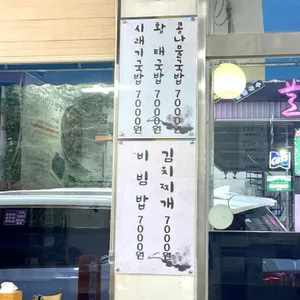 콩나물국밥 7000원
황태국밥 7000원
시래기국밥 7000원
김치찌개 7000원
비빔밥 7000원